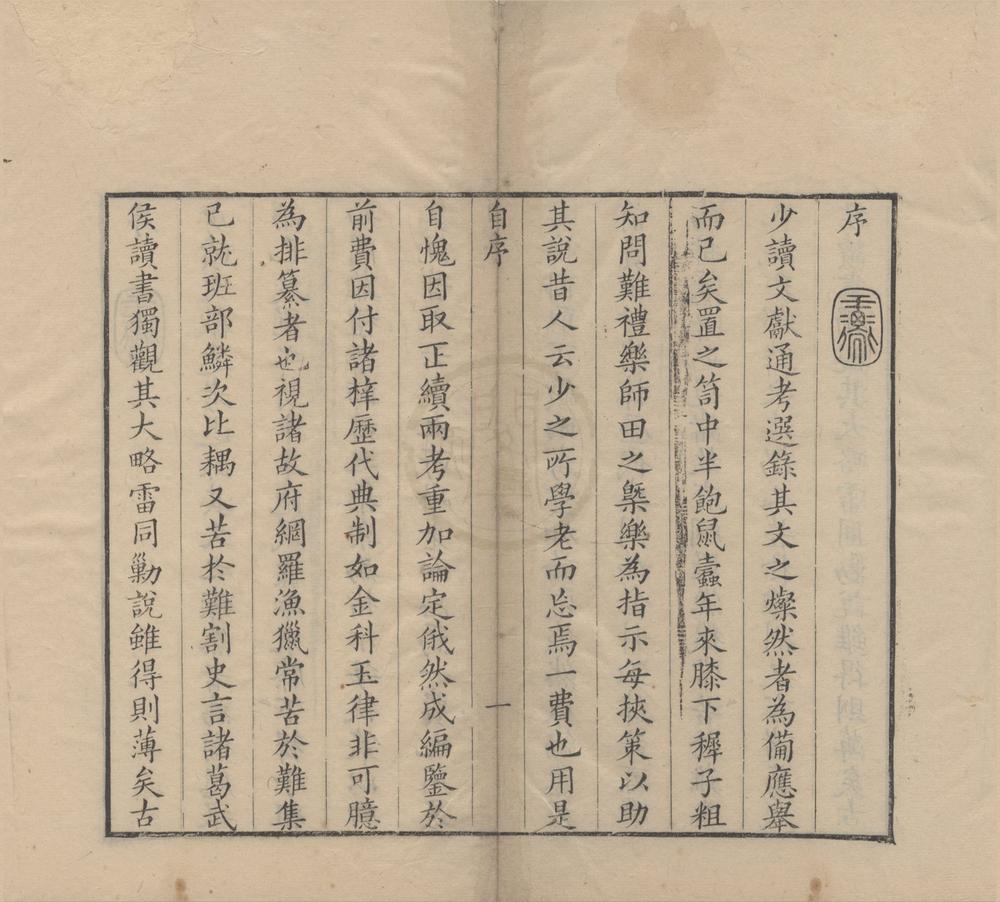 序
少讀文獻通考選錄其文之燦然者為備應舉
而已矣置之笥中半飽鼠蠹年來膝下穉子粗
知問難禮樂師田之槩樂為指示每挾策以助
其說昔人云少之所學老而忘焉一費也用是
自序 一
自愧因取正續兩考重加論定俄然成編鑒於
前費因付諸梓歷代典制如金科玉律非可臆
為排纂者也視諸故府網羅漁獵常苦於難集
已就班部鱗次比耦又苦於難割史言諸葛武
侯讀書獨觀其大略雷同勦說雖得則薄矣古